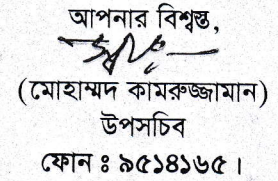 আপনার বিশ্বস্ত,
(মোহাম্মদ কামরুজ্জামান)
উপসচিব
ফোন ঃ ৯৫১৪১৬৫।